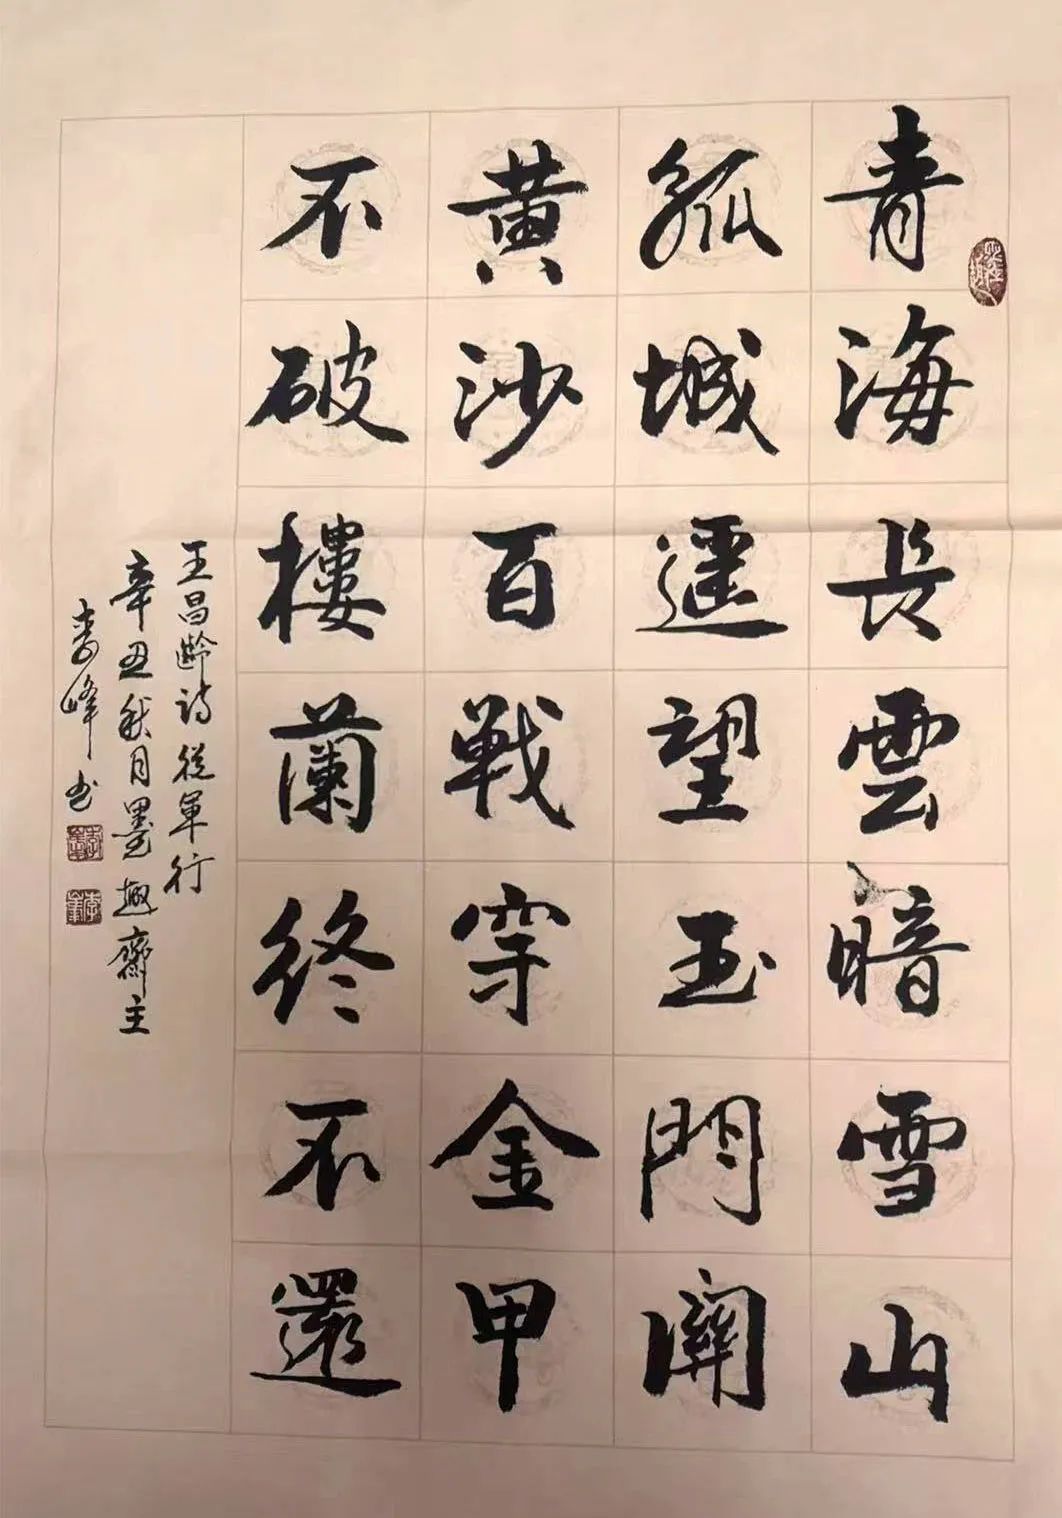 青海長雲暗雪山
孤城遥望玉門関
黄沙百戦穿金甲
不破樓蘭終不還
王昌齡诗從軍行
辛丑秋月墨趣齋主
峰书